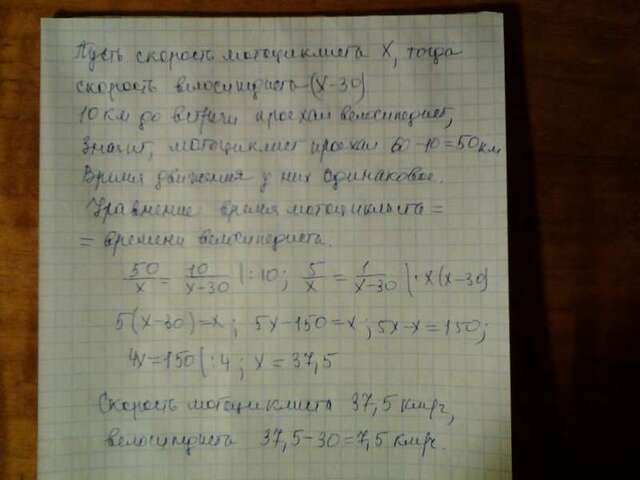 Пусть скорость мотоциклиста X, тогда
скорость велосипедиста (X-30)
10 км до встречи проехал велосипедист,
Значит, мотоциклист проехал 60-10=50 км
Время движения у них одинаковое.
Уравнение: время мотоциклиста =
= времени велосипедиста.
50/x = 10/x-30 |:10; 5/x = 1/x-30 |·x(x-30)
5(x-30)=x; 5x-150=x; 5x-x=150;
4x=150|:4; x=37,5
Скорость мотоциклиста 37,5 км/ч,
велосипедиста 37,5-30=7,5 км/ч.